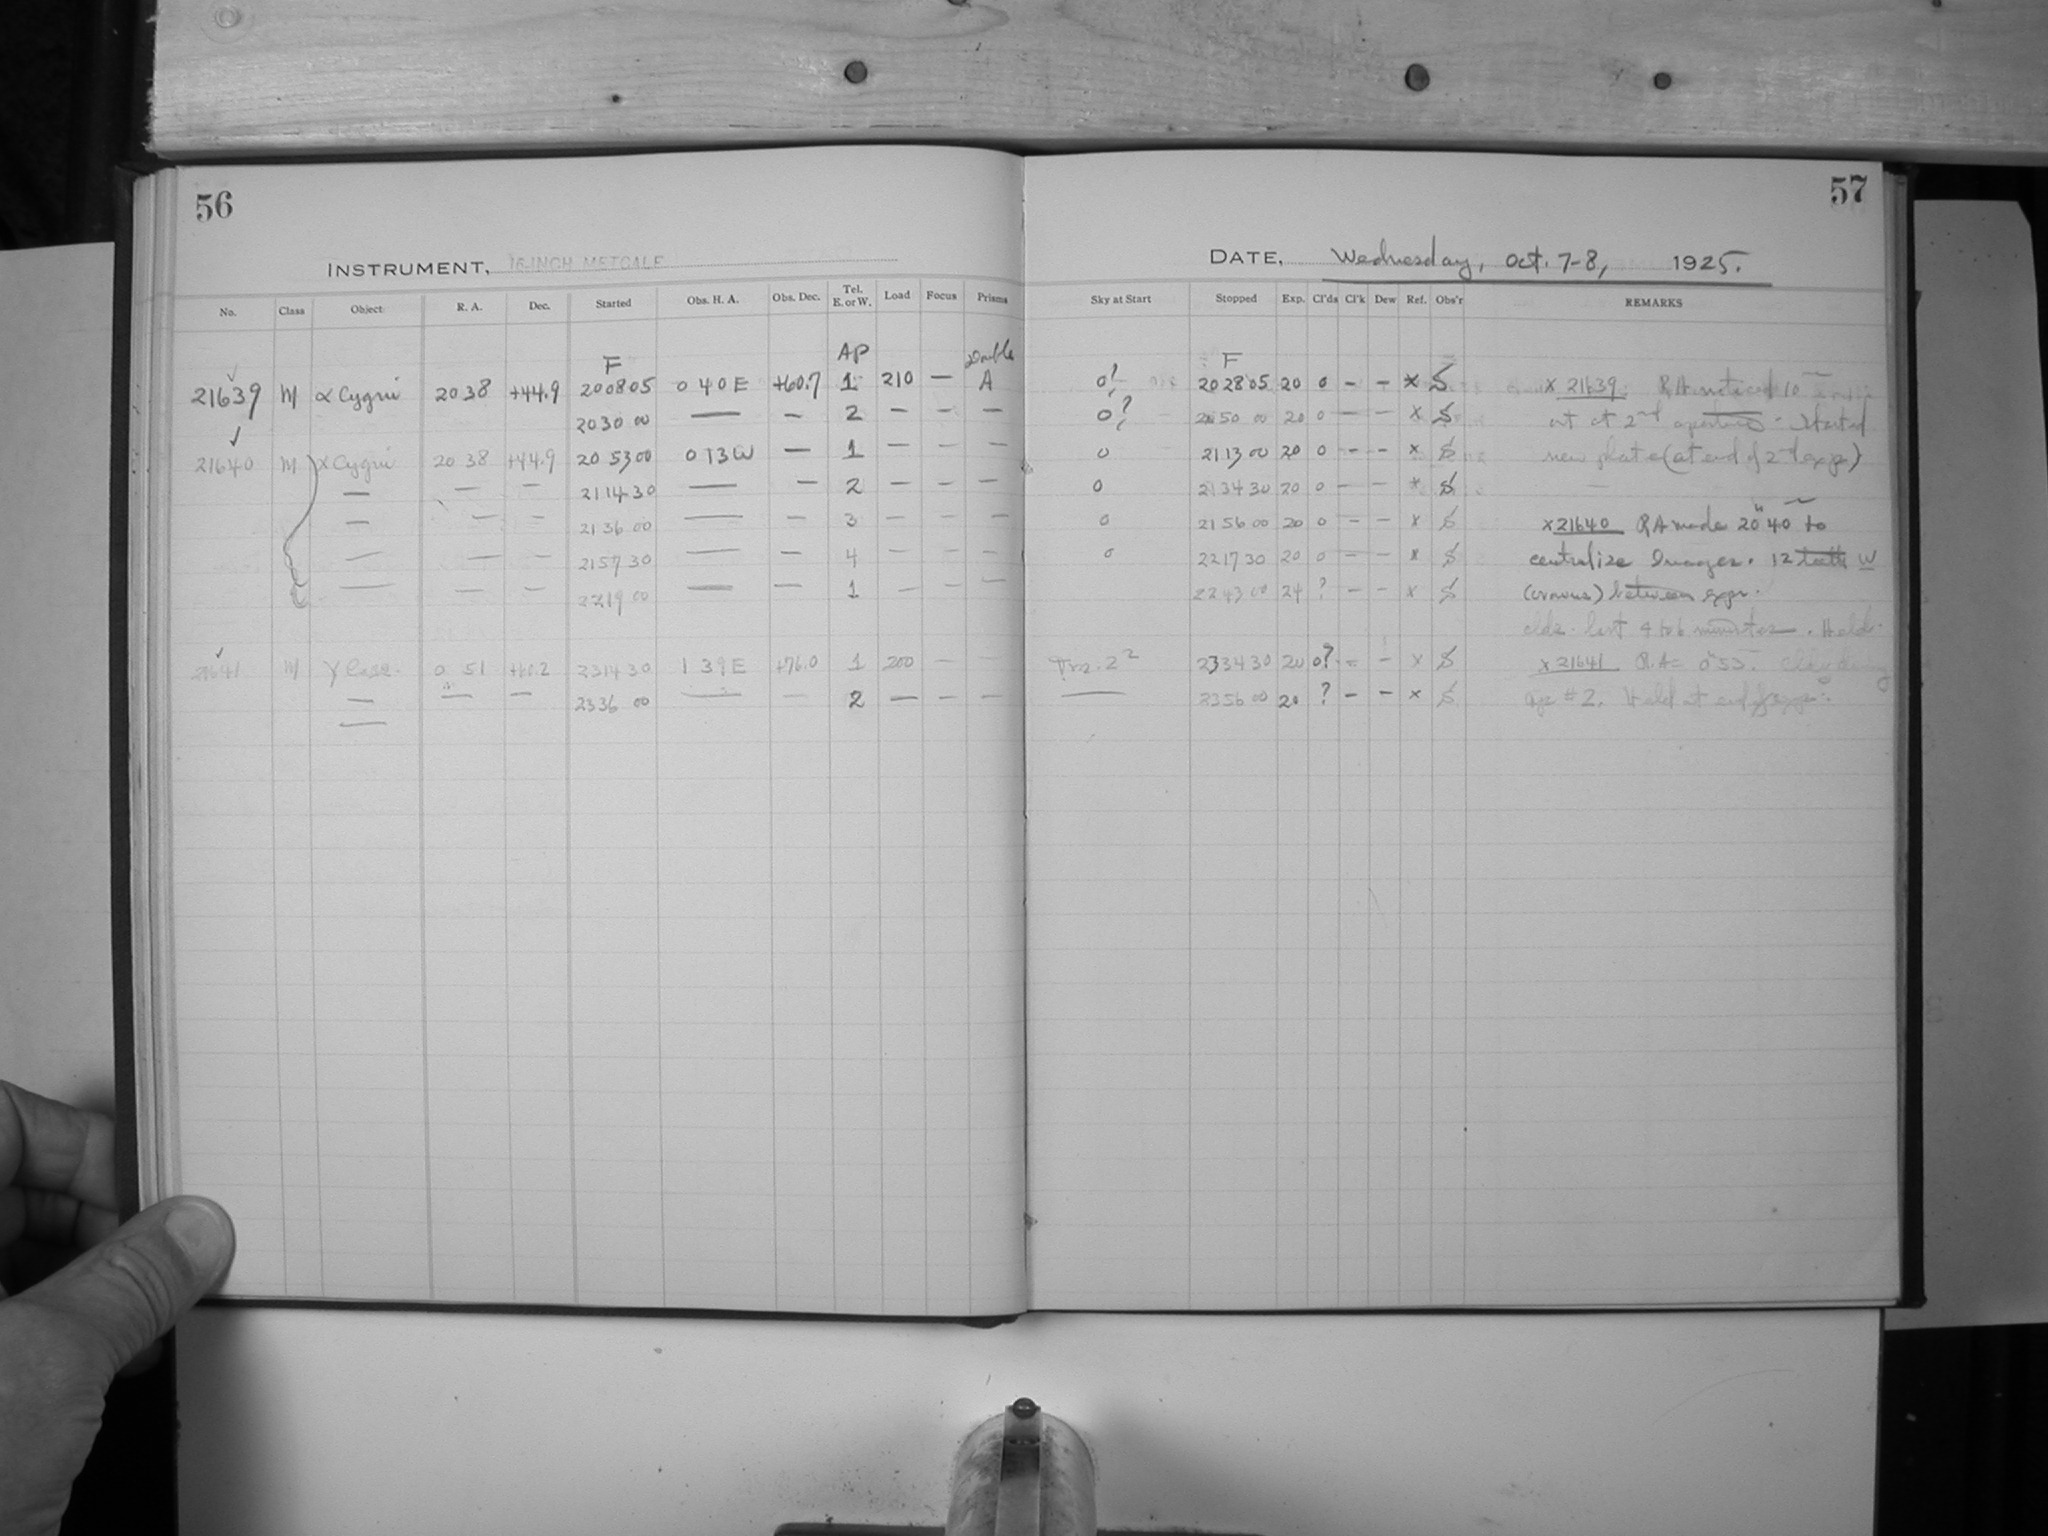 56
57
INSTRUMENT, 16-INCH METCALF
DATE, Wednesday, Oct. 7-8, 1925.
No. Class Object R. A. Dec. Started Obs. H. A. Obs. Dec. Tel. E. or W. Load Focus Prisms
Sky at Start Stopped Exp. Cl'ds Cl'k Dew Ref. Obs'r REMARKS
F AP Double F
21639 M α Cygni 20 38 +44.9 20 08 05 0 40 E +60.7 1 210 — A 0? 20 28 05 20 0 - - x S x 21639 RA noticed 10
20 30 00 — — 2 — — — 0? 20 50 00 20 0 — — x S at 2nd aperture. Started
21640 M α Cygni 20 38 +44.9 20 53 00 0 13 W — 1 — — — 0 21 13 00 20 0 - - x S new plate (at end of 2d exp.)
— — — 21 14 30 — — 2 — — — 0 21 34 30 20 0 — — x S
— — — 21 36 00 — — 3 — — — 0 21 56 00 20 0 — — x S x 21640 RA made 20h 40m to
— — — 21 57 30 — — 4 — — — 0 22 17 30 20 0 — — x S centralize Images. 12 teeth W
— 22 19 00 — — 1 — — — 22 43 00 24 ? — — x S between exps.
clds. last 4 to 6 minutes. Held.
21641 M γ Cass. 0 51 +60.2 23 14 30 1 39 E +76.0 1 200 — — 23 34 30 20 0? - - x S x 21641 R.A= 0 53.
— — — 23 36 00 — — 2 — — — — 23 56 00 20 ? - - x S ap #2. Held at end of exp.